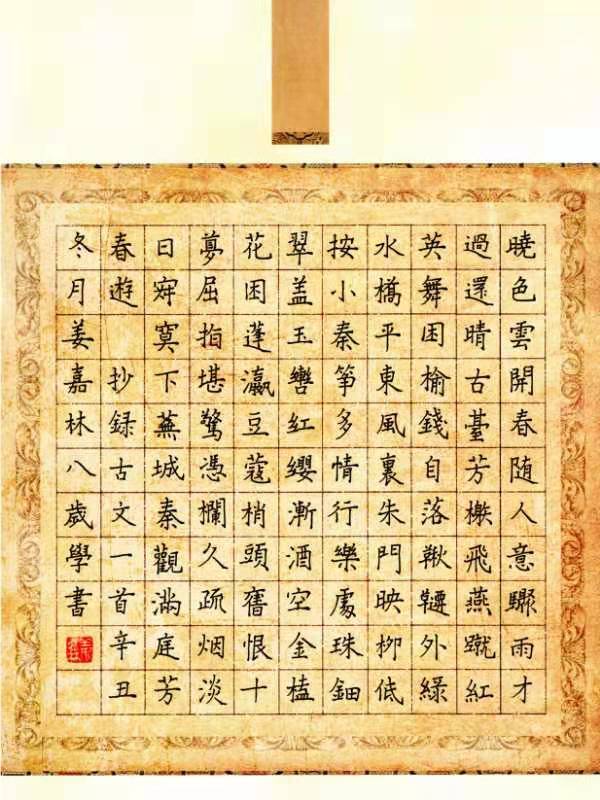 曉色雲開春随人意驟雨才
過還晴古臺芳榭飛燕蹴紅
英舞困榆錢自落鞦韆外綠
水橋平東風裏朱門映柳低
按小秦箏多情行樂處珠鈿
翠盖玉轡紅纓漸酒空金榼
花困蓬瀛豆蔻梢頭舊恨十
夢屈指堪驚憑欄久疏烟淡
日寂寞下蕪城秦觀滿庭芳
春遊 抄録古文一首辛丑
冬月姜嘉林八歲學書